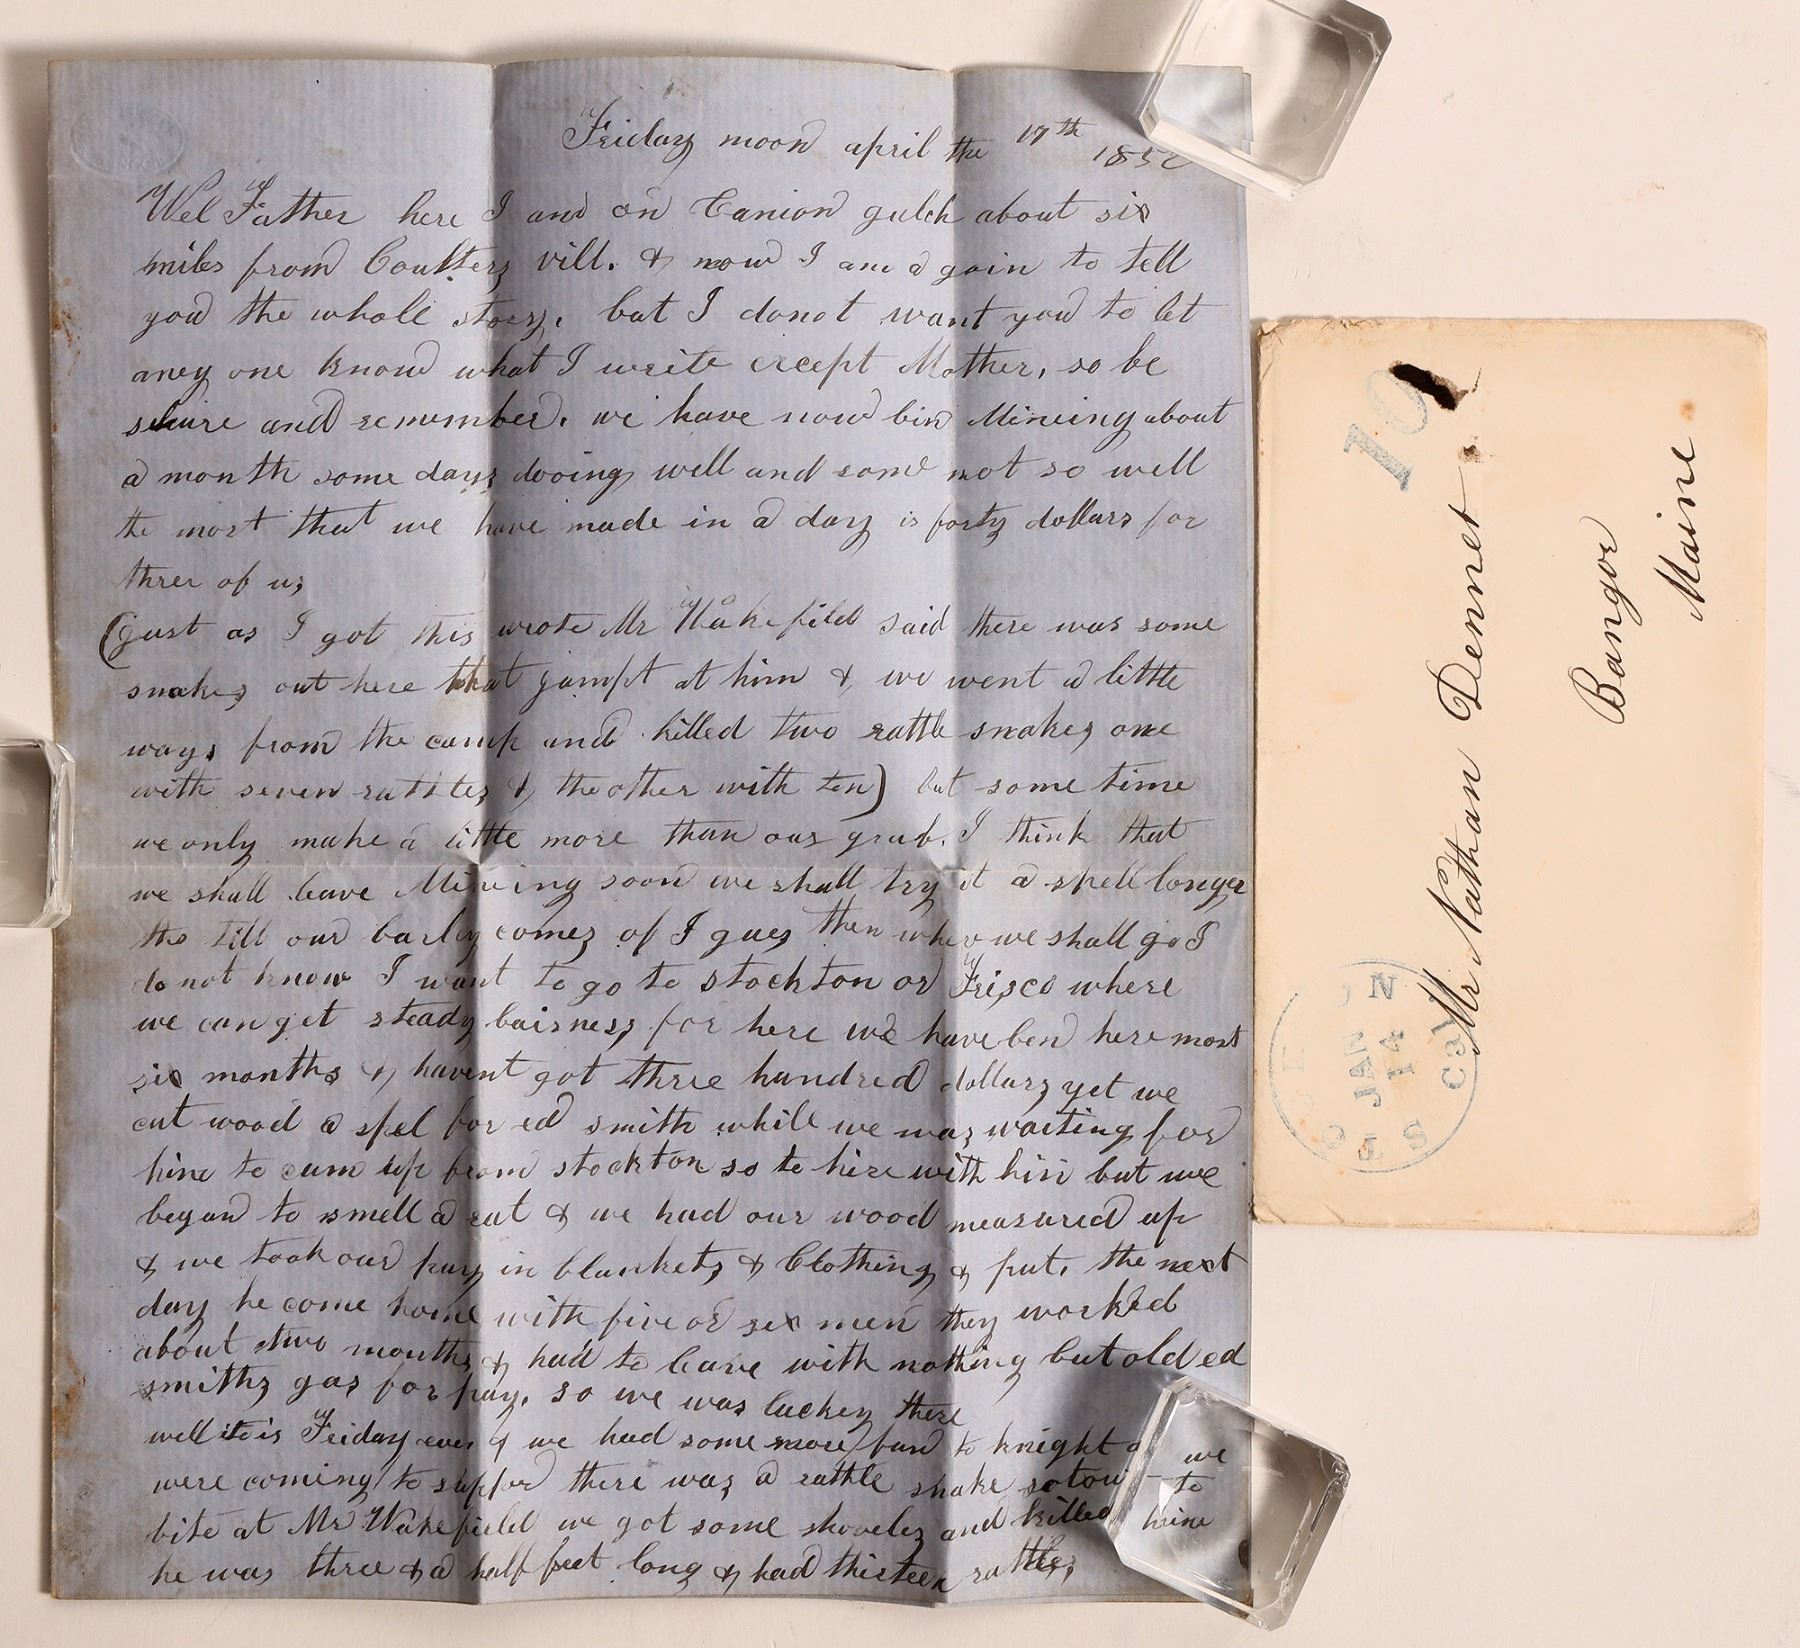 Friday noon april the 17th
185
Wel Father here I am on Canion gulch about six
miles from Coulters vill. & now I am a goin to tell
you the whole story, but I donot want you to let
aney one know what I write except Mother, so be
shure and remember. we have now bin Mineing about
a month some days dooing well and some not so well
the most that we have made in a day is forty dollars for
three of us
(just as I got this wrote Mr Wakefild said there was some
snakes out here that jumpt at him & we went a little
ways from the camp and killed two rattle snakes one
with seven rattles & the other with ten) but some time
we only make a little more than our grub. I think that
we shall leave Mineing soon we shall try it a spell longer
tho till our barley comes of I gues then wher we shall go I
do not know I want to go to stockton or Frisco where
we can get steady baisness for here we have ben here most
six months & havent got three hundred dollars yet we
cut wood a spel for ed smith while we was waiting for
him to cum up from stockton so to hire with him but we
began to smell a rat & we had our wood measured up
& we took our pay in blankets & Clothing & put. the next
day he come home with five or six men they worked
about two months & had to leave with nothing but old ed
smiths gas for pay. so we was luckey there
well it is Friday even & we had some more fun to knight as we
were coming to supper there was a rattle snake to
bite at Mr Wakefield we got some shoveles and killed him
he was three & a half feet long & had thirteen rattles,
10
Mr Nathan Dennet
Bangor
Maine
STOCKTON Cal
JAN
14